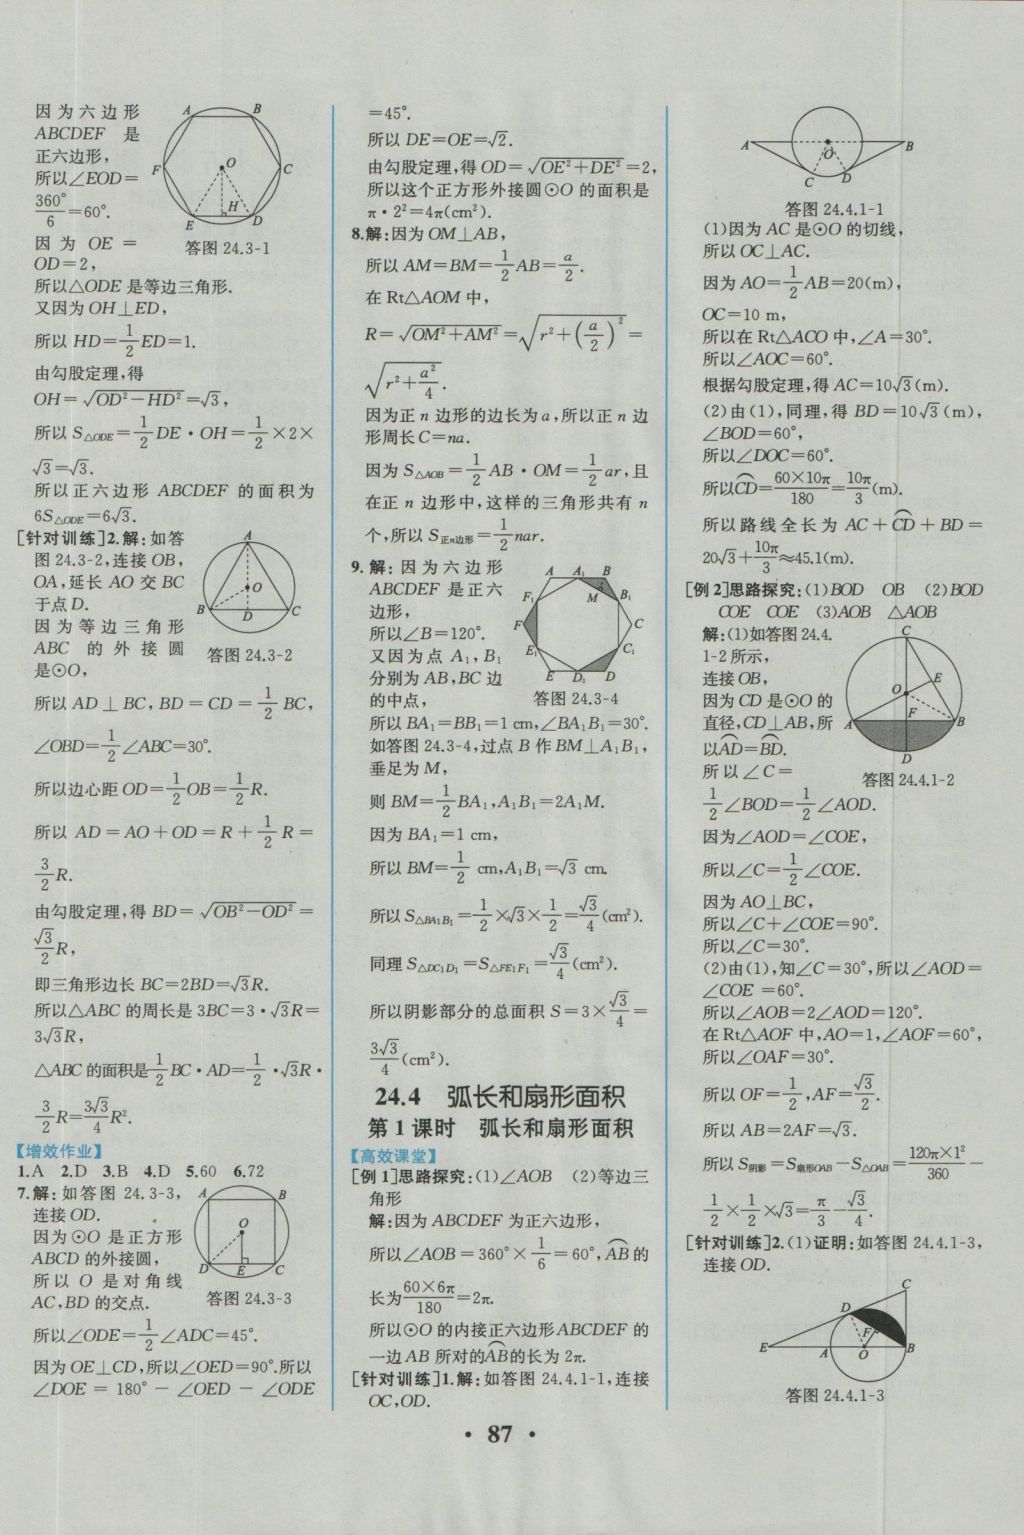 因为六边形
ABCDEF 是
正六边形，
所以∠EOD＝
360°/6＝60°.
因为 OE＝
OD＝2，
所以△ODE 是等边三角形.
又因为 OH⊥ED，
所以 HD＝1/2 ED＝1.
由勾股定理,得
OH＝√(OD²－HD²)＝√3，
所以 S△ODE＝1/2 DE·OH＝1/2×2×
√3＝√3.
所以正六边形 ABCDEF 的面积为
6S△ODE＝6√3.
A B F O C H E D
答图 24.3-1
[针对训练]2.解:如答
图 24.3-2,连接 OB,
OA,延长 AO 交 BC
于点 D.
因为等边三角形
ABC 的外接圆
是⊙O,
A O B D C
答图 24.3-2
所以 AD⊥BC,BD＝CD＝1/2 BC,
∠OBD＝1/2∠ABC＝30°.
所以边心距 OD＝1/2 OB＝1/2 R.
所以 AD＝AO＋OD＝R＋1/2 R＝
3/2 R.
由勾股定理,得 BD＝√(OB²－OD²)＝
√3/2 R,
即三角形边长 BC＝2BD＝√3R.
所以△ABC 的周长是 3BC＝3·√3R＝
3√3R,
△ABC 的面积是 1/2 BC·AD＝1/2·√3R·
3/2 R＝3√3/4 R².
【增效作业】
1.A 2.D 3.B 4.D 5.60 6.72
7.解:如答图 24.3-3,
连接 OD.
因为⊙O 是正方形
ABCD 的外接圆,
所以 O 是对角线
AC,BD 的交点.
A B O D E C
答图 24.3-3
所以∠ODE＝1/2∠ADC＝45°.
因为 OE⊥CD,所以∠OED＝90°.所以
∠DOE＝180°－∠OED－∠ODE
＝45°.
所以 DE＝OE＝√2.
由勾股定理,得 OD＝√(OE²＋DE²)＝2,
所以这个正方形外接圆⊙O 的面积是
π·2²＝4π(cm²).
8.解:因为 OM⊥AB,
所以 AM＝BM＝1/2 AB＝a/2.
在 Rt△AOM 中,
R＝√(OM²＋AM²)＝√(r²＋(a/2)²)＝
√(r²＋a²/4).
因为正 n 边形的边长为 a,所以正 n 边
形周长 C＝na.
因为 S△AOB＝1/2 AB·OM＝1/2 ar,且
在正 n 边形中,这样的三角形共有 n
个,所以 S正n边形＝1/2 nar.
9.解:因为六边形
ABCDEF 是正六
边形,
所以∠B＝120°.
又因为点 A₁,B₁
分别为 AB,BC 边
的中点,
A A₁ B F₁ M B₁ F C E₁ C₁ E D₁ D
答图 24.3-4
所以 BA₁＝BB₁＝1 cm,∠BA₁B₁＝30°.
如答图 24.3-4,过点 B 作 BM⊥A₁B₁,
垂足为 M,
则 BM＝1/2 BA₁,A₁B₁＝2A₁M.
因为 BA₁＝1 cm,
所以 BM＝1/2 cm,A₁B₁＝√3 cm.
所以 S△BA₁B₁＝1/2×√3×1/2＝√3/4(cm²).
同理 S△DC₁D₁＝S△FE₁F₁＝√3/4(cm²).
所以阴影部分的总面积 S＝3×√3/4＝
3√3/4(cm²).
24.4 弧长和扇形面积
第 1 课时 弧长和扇形面积
【高效课堂】
[例 1]思路探究:(1)∠AOB (2)等边三
角形
解:因为 ABCDEF 为正六边形,
所以∠AOB＝360°×1/6＝60°,A͡B的
长为 60×6π/180＝2π.
所以⊙O 的内接正六边形 ABCDEF 的
一边 AB 所对的A͡B的长为 2π.
[针对训练]1.解:如答图 24.4.1-1,连接
OC,OD.
A O B C D
答图 24.4.1-1
(1)因为 AC 是⊙O 的切线,
所以 OC⊥AC.
因为 AO＝1/2 AB＝20(m),
OC＝10 m,
所以在 Rt△ACO 中,∠A＝30°.
所以∠AOC＝60°.
根据勾股定理,得 AC＝10√3(m).
(2)由(1),同理,得 BD＝10√3(m),
∠BOD＝60°,
所以∠DOC＝60°.
所以C͡D＝60×10π/180＝10π/3(m).
所以路线全长为 AC＋C͡D＋BD＝
20√3＋10π/3≈45.1(m).
[例 2]思路探究:(1)BOD OB (2)BOD
COE COE (3)AOB △AOB
解:(1)如答图 24.4.
1-2 所示,
连接 OB,
因为 CD 是⊙O 的
直径,CD⊥AB,所
以A͡D＝B͡D.
所以∠C＝
C E O F A B D
答图 24.4.1-2
1/2∠BOD＝1/2∠AOD.
因为∠AOD＝∠COE,
所以∠C＝1/2∠COE.
因为 AO⊥BC,
所以∠C＋∠COE＝90°.
所以∠C＝30°.
(2)由(1),知∠C＝30°,所以∠AOD＝
∠COE＝60°.
所以∠AOB＝2∠AOD＝120°.
在 Rt△AOF 中,AO＝1,∠AOF＝60°,
所以∠OAF＝30°.
所以 OF＝1/2,AF＝√3/2.
所以 AB＝2AF＝√3.
所以 S阴影＝S扇形OAB－S△OAB＝120π×1²/360－
1/2×1/2×√3＝π/3－√3/4.
[针对训练]2.(1)证明:如答图 24.4.1-3,
连接 OD.
C D F E A O B
答图 24.4.1-3
· 87 ·